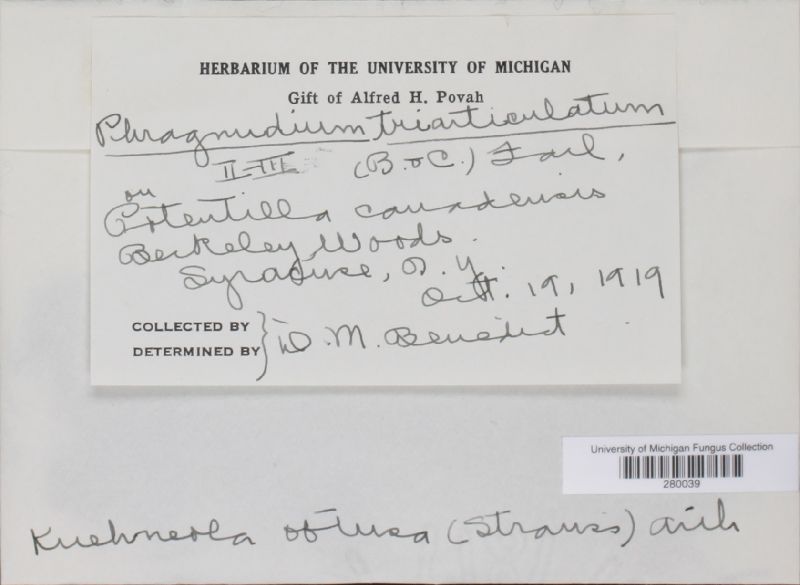 HERBARIUM OF THE UNIVERSITY OF MICHIGAN
Gift of Alfred H. Povah
Phragmidium triarticulatum
II-III (B. & C.) Farl.
on
Potentilla canadensis
Berkeley Woods.
Syracuse, N. Y.
Oct. 19, 1919
COLLECTED BY
DETERMINED BY } D. M. Benedict
University of Michigan Fungus Collection
280039
Kuehneola obtusa (Strauss) Arth